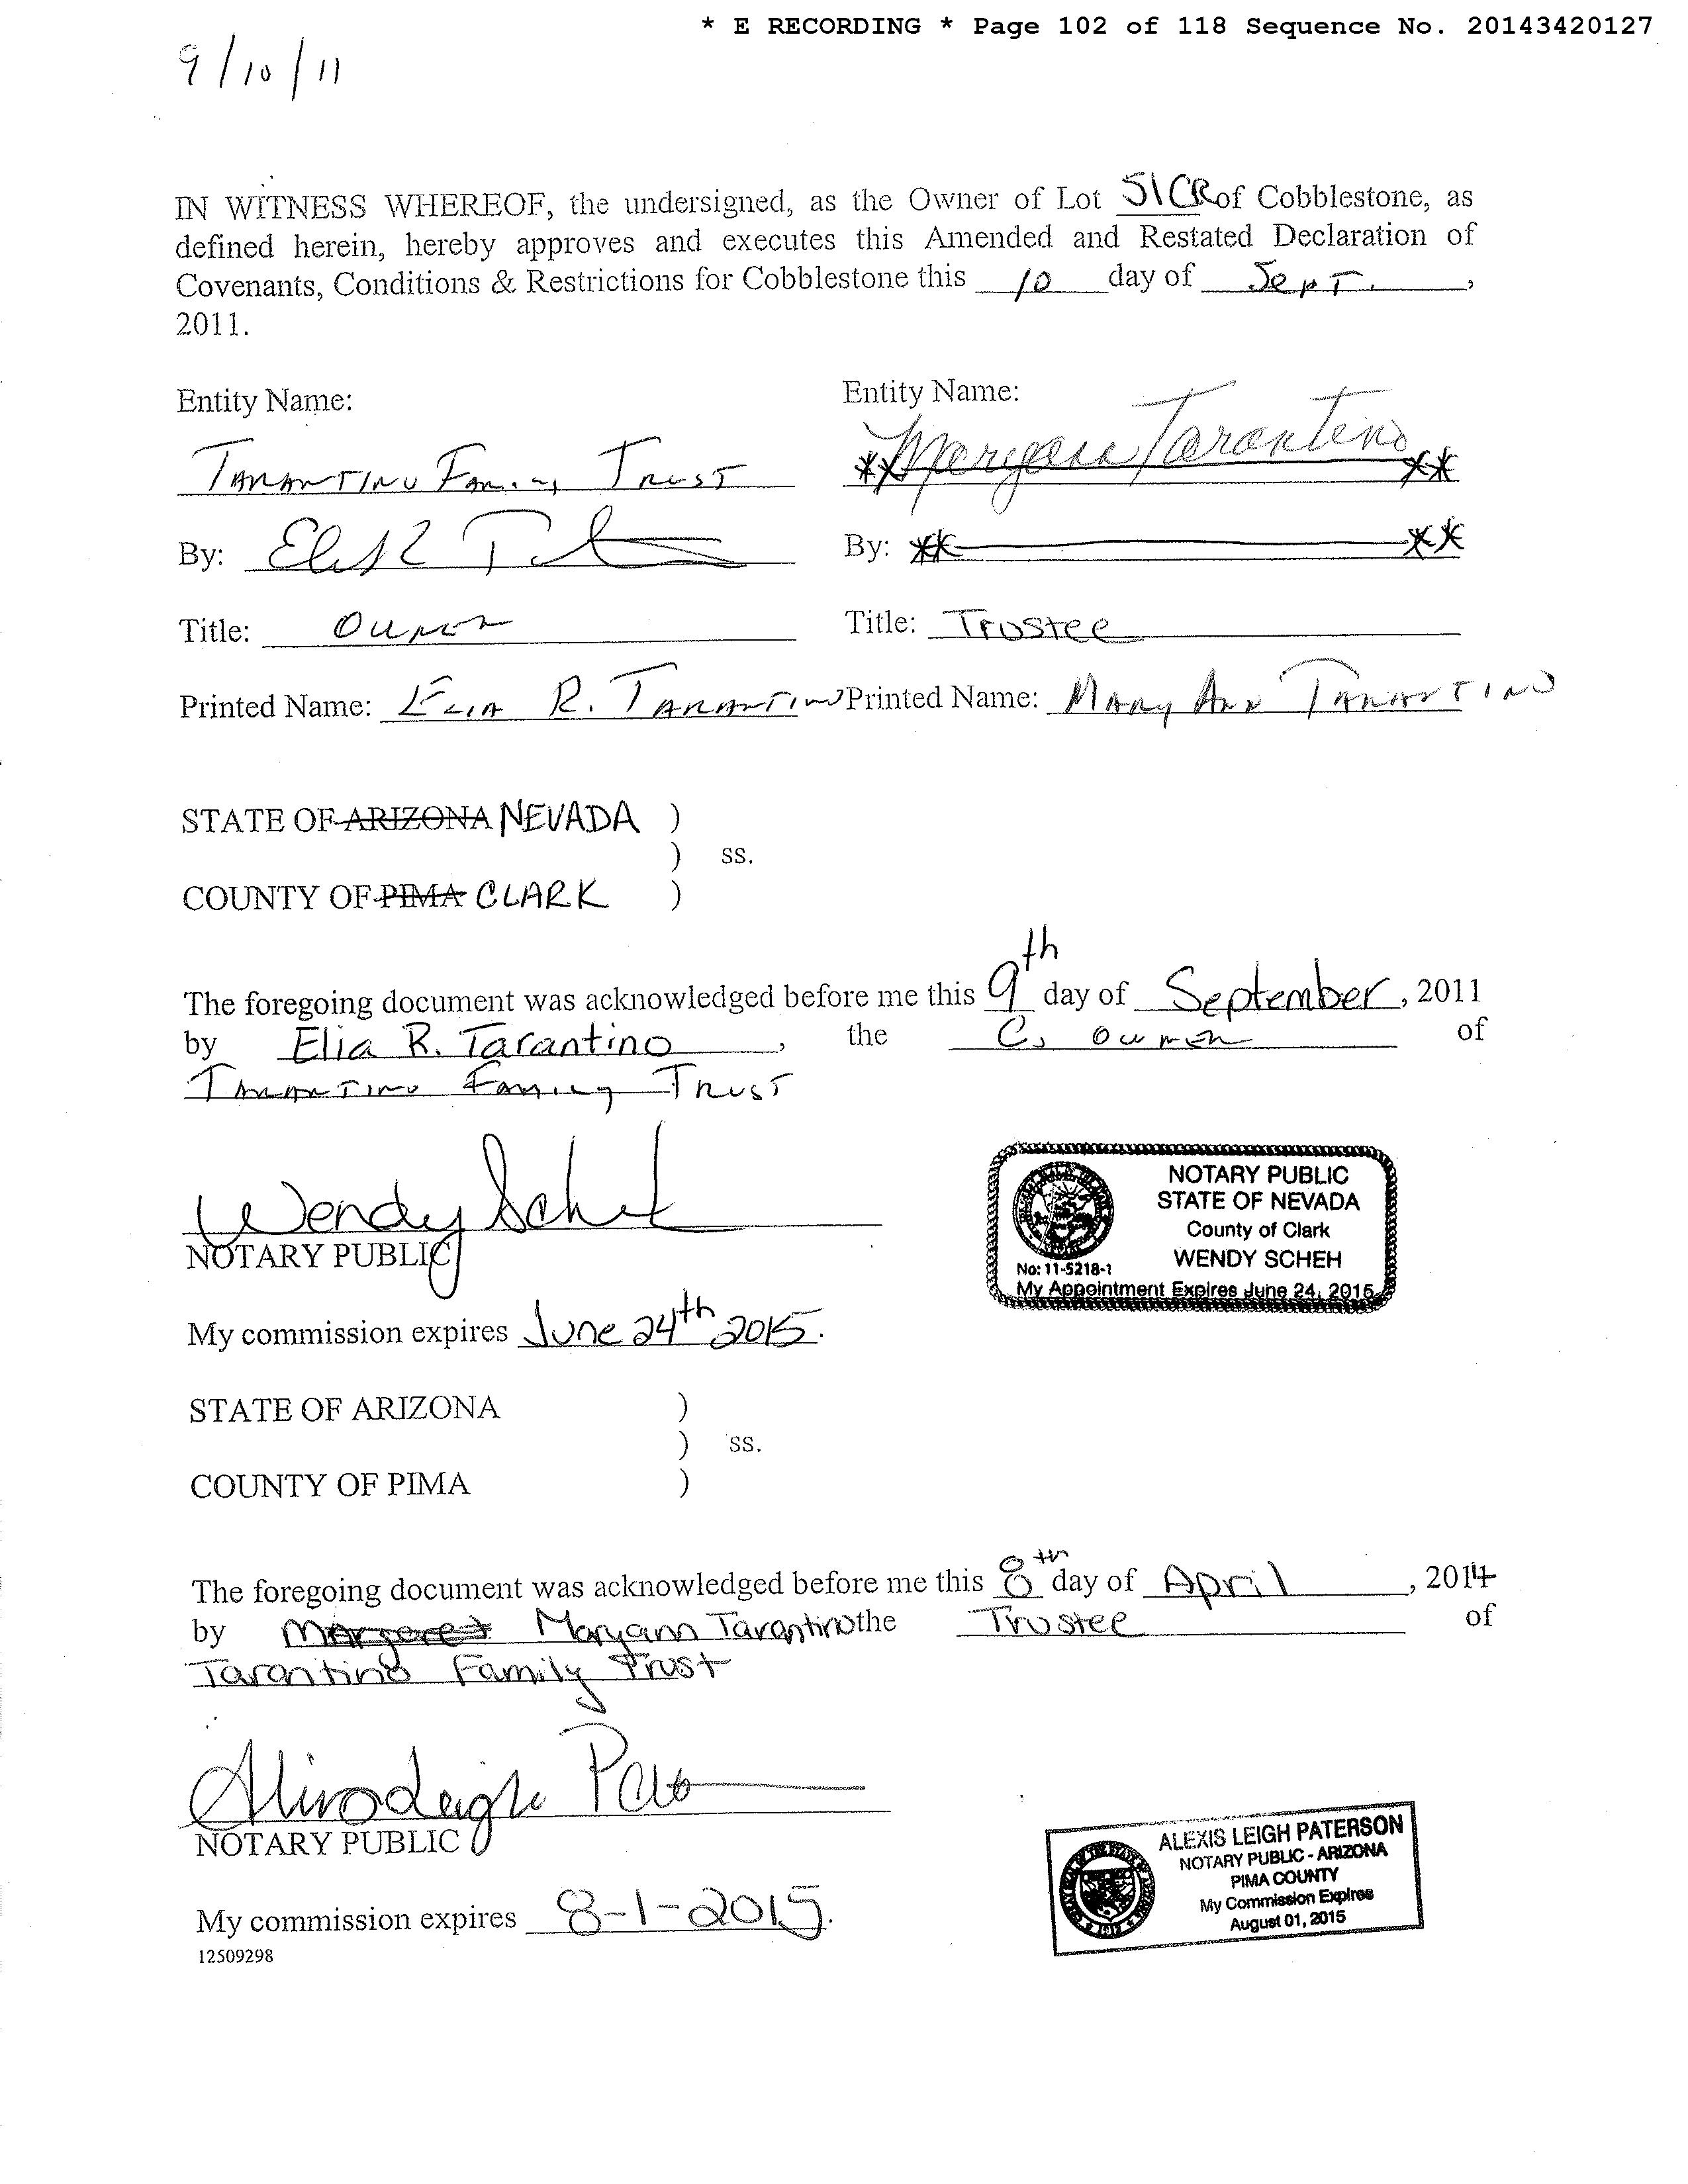 * E RECORDING * Page 102 of 118 Sequence No. 20143420127
9/10/11
IN WITNESS WHEREOF, the undersigned, as the Owner of Lot 51CR of Cobblestone, as
defined herein, hereby approves and executes this Amended and Restated Declaration of
Covenants, Conditions & Restrictions for Cobblestone this 10 day of Sept. ,
2011.
Entity Name: Entity Name:
TARANTINO FAMILY TRUST ** Maryann Tarantino **
By: By: ** **
Title: OWNER Title: Trustee
Printed Name: ELIA R. TARANTINO Printed Name: MARY ANN TARANTINO
STATE OF ARIZONA NEVADA )
) ss.
COUNTY OF PIMA CLARK )
The foregoing document was acknowledged before me this 9th day of September, 2011
by Elia R. Tarantino, the Co owner of
TARANTINO FAMILY TRUST
Wendy Scheh
NOTARY PUBLIC
NOTARY PUBLIC
STATE OF NEVADA
County of Clark
WENDY SCHEH
No: 11-5218-1
My Appointment Expires June 24, 2015
My commission expires June 24th 2015.
STATE OF ARIZONA )
) ss.
COUNTY OF PIMA )
The foregoing document was acknowledged before me this 8th day of April , 2014
by Margaret Maryann Tarantino the Trustee of
Tarantino Family Trust
NOTARY PUBLIC
ALEXIS LEIGH PATERSON
NOTARY PUBLIC - ARIZONA
PIMA COUNTY
My Commission Expires
August 01, 2015
My commission expires 8-1-2015.
12509298